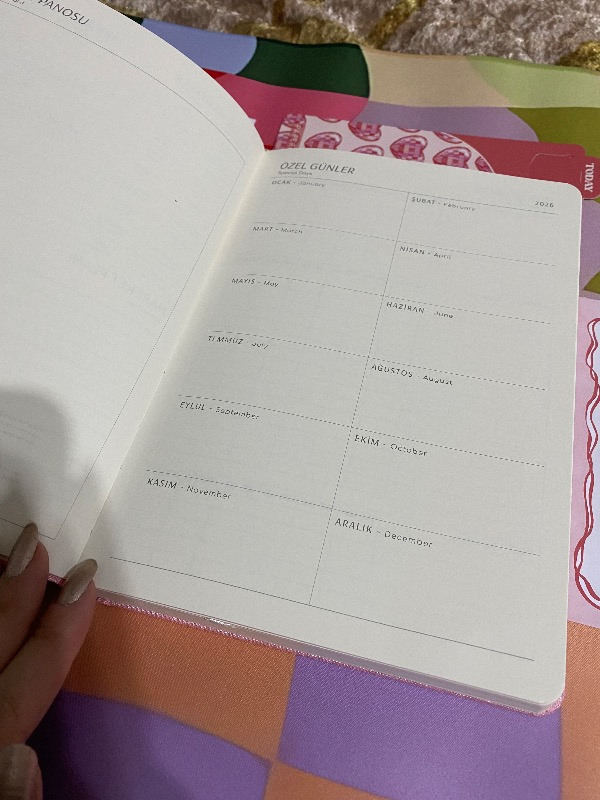 PANOSU
ÖZEL GÜNLER
Special Days
2026
OCAK - January
ŞUBAT - February
MART - March
NİSAN - April
MAYIS - May
HAZİRAN - June
TEMMUZ - July
AĞUSTOS - August
EYLÜL - September
EKİM - October
KASIM - November
ARALIK - December
TODAY